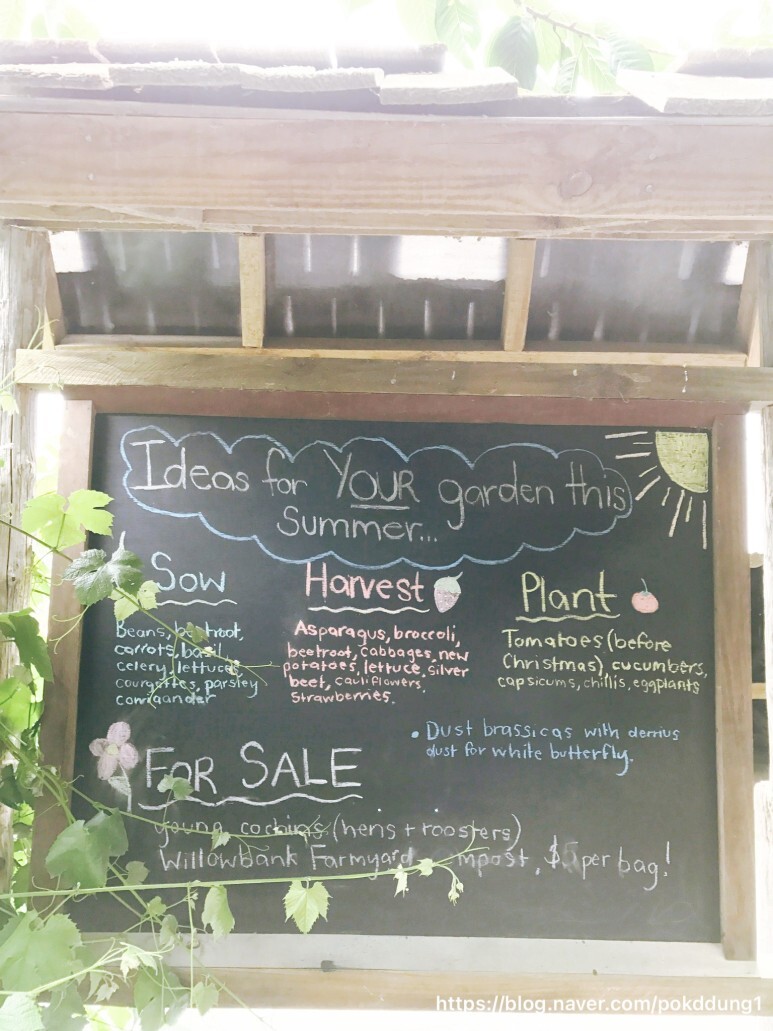 Ideas for YOUR garden this
Summer...
Sow
Beans, beetroot,
carrots, basil,
celery, lettuces,
courgettes, parsley
corriander
Harvest
Asparagus, broccoli,
beetroot, cabbages, new
potatoes, lettuce, silver
beet, cauliflowers,
Strawberries.
Plant
Tomatoes (before
Christmas) cucumbers,
capsicums, chillis, eggplants
• Dust brassicas with derrius
dust for white butterfly.
FOR SALE
young cochins (hens + roosters)
Willowbank Farmyard per bag!
https://blog.naver.com/pokddung1